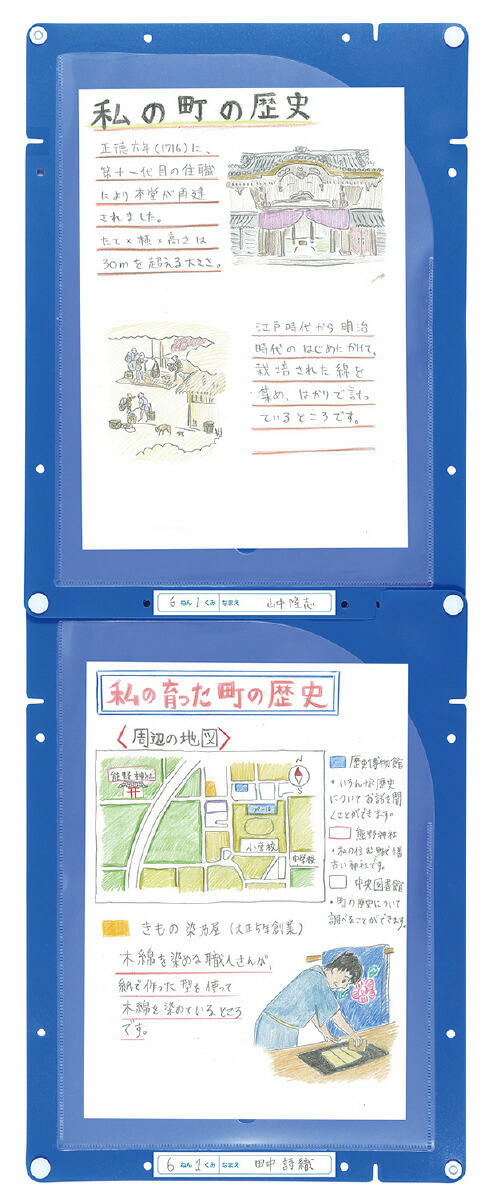 私の町の歴史
正徳六年(1716)に、
第十一代目の住職
により本堂が再建
されました。
たて×横×高さは
30mを超える大きさ。
江戸時代から明治
時代のはじめにかけて、
栽培された綿を
集め、はかりで計っ
ているところです。
6 ねん 1 くみ なまえ 山中 隆志
私の育った町の歴史
〈周辺の地図〉
熊野神社
N
S
プール
小学校
中学校
歴史博物館
・いろんな歴史
についてお話を聞
くことができます。
熊野神社
・私の住む町で1番
古い神社です。
中央図書館
・町の歴史について
調べることができます。
きもの 染乃屋 (大正5年創業)
木綿を染める職人さんが、
紙で作った型を使って
木綿を染めているところ
です。
6 ねん 1 くみ なまえ 田中 詩織